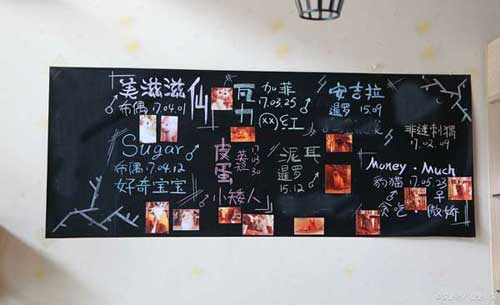 美滋滋
布偶 17.04.01
仙
加菲
17.03.25
红
安吉拉
暹罗 15.09
非缝刺猬
17.02.09
Sugar
布偶 17.04.12
好奇宝宝
皮蛋
17
03
30
小矮人
泥耳
暹罗
15.12
Money·Much
豹猫 17.05.23
贪吃·傲娇